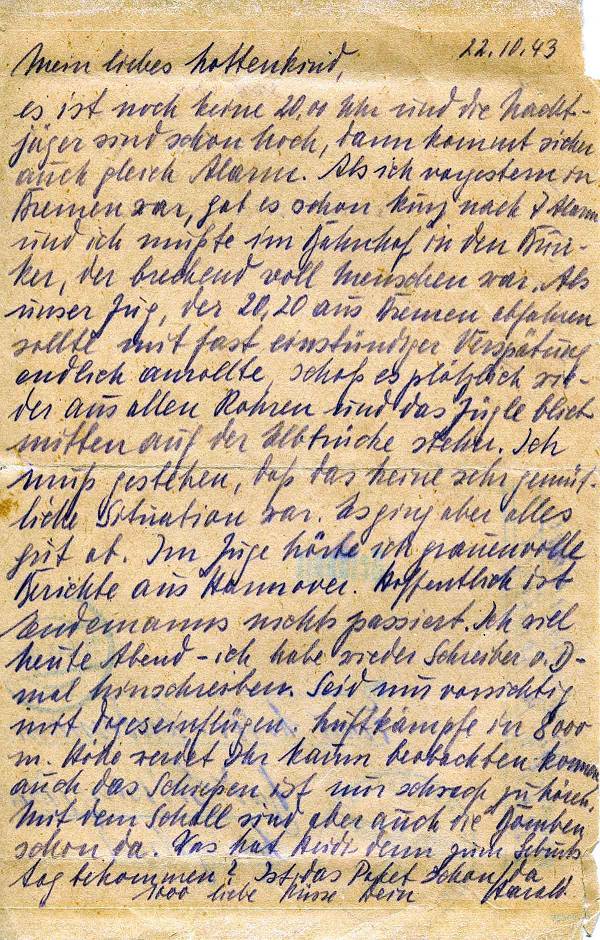 22.10.43
Mein liebes Lottenkind,
es ist noch keine 20,00 Uhr und die Nacht-
jäger sind schon hoch, dann kommt sicher
auch gleich Alarm. Als ich vorgestern in
Bremen war, gab es schon kurz nach 7 Alarm
und ich mußte im Bahnhof in den Bun-
ker, der brechend voll Menschen war. Als
unser Zug, der 20,20 aus Bremen abfahren
sollte mit fast einstündiger Verspätung
endlich anrollte, schoß es plötzlich wie-
der aus allen Rohren und das Zügle blieb
mitten auf der Elbbrücke stehn. Ich
muß gestehen, daß das keine sehr gemüt-
liche Situation war. Es ging aber alles
gut ab. Im Zuge hörte ich grauenvolle
Berichte aus Hannover. Hoffentlich ist
Lindemanns nichts passiert. Ich will
heute Abend – ich habe wieder Schreiber v. D-
mal hinschreiben. Seid nur vorsichtig
mit Tageseinflügen. Luftkämpfe in 8000
m. Höhe werdet Ihr kaum beobachten können
auch das Schießen ist nur schwach zu hören.
Mit dem Schall sind aber auch die Bomben
schon da. Was hat Heidi denn zum Geburts
tag bekommen? Ist das Paket schon da
1000 liebe Küsse Dein Harald